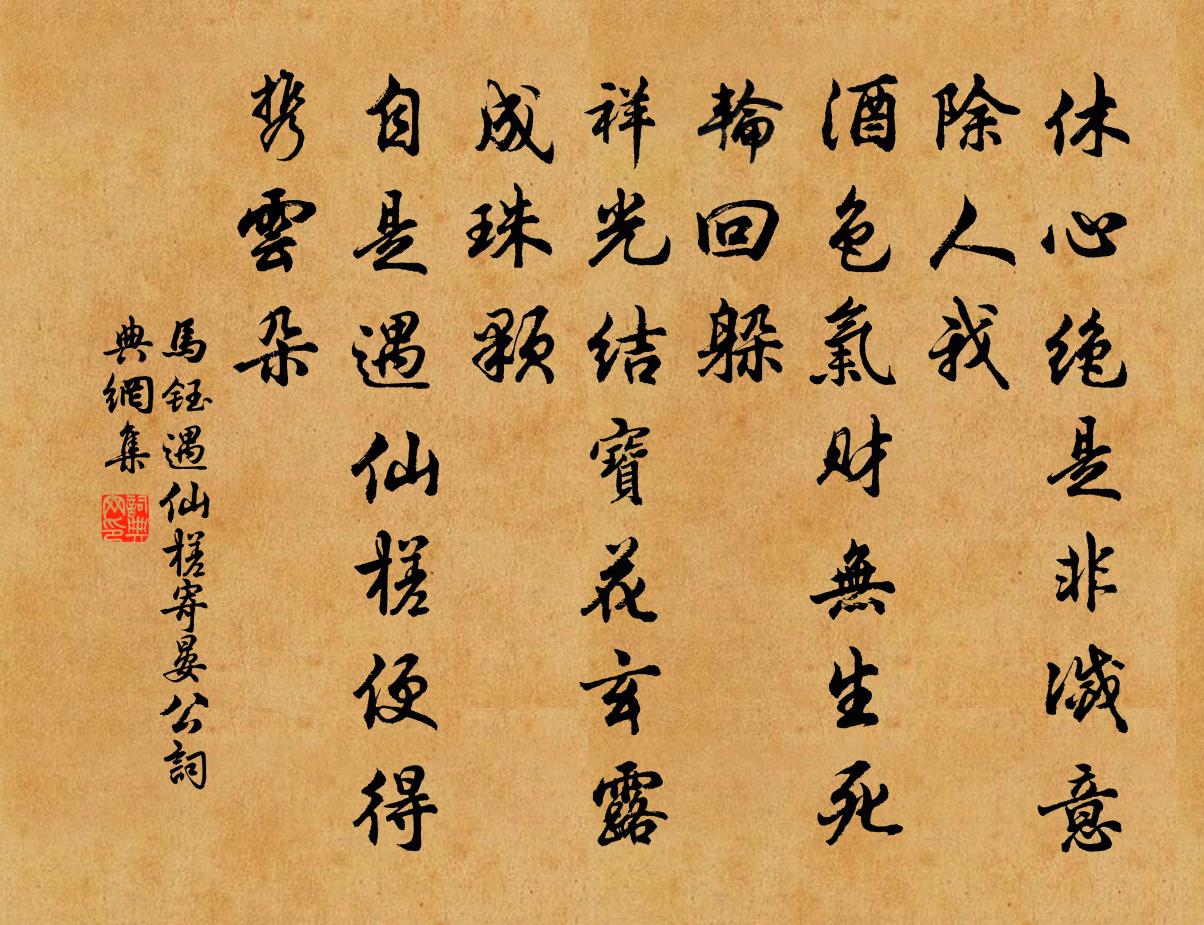 休心絶是非滅意
除人我
酒色氣財無生死
輪回躲
祥光結寶花玄露
成珠顆
自是遇仙槎便得
携雲朵
馬鈺遇仙槎寄晏公詞
典網集
詞典網印